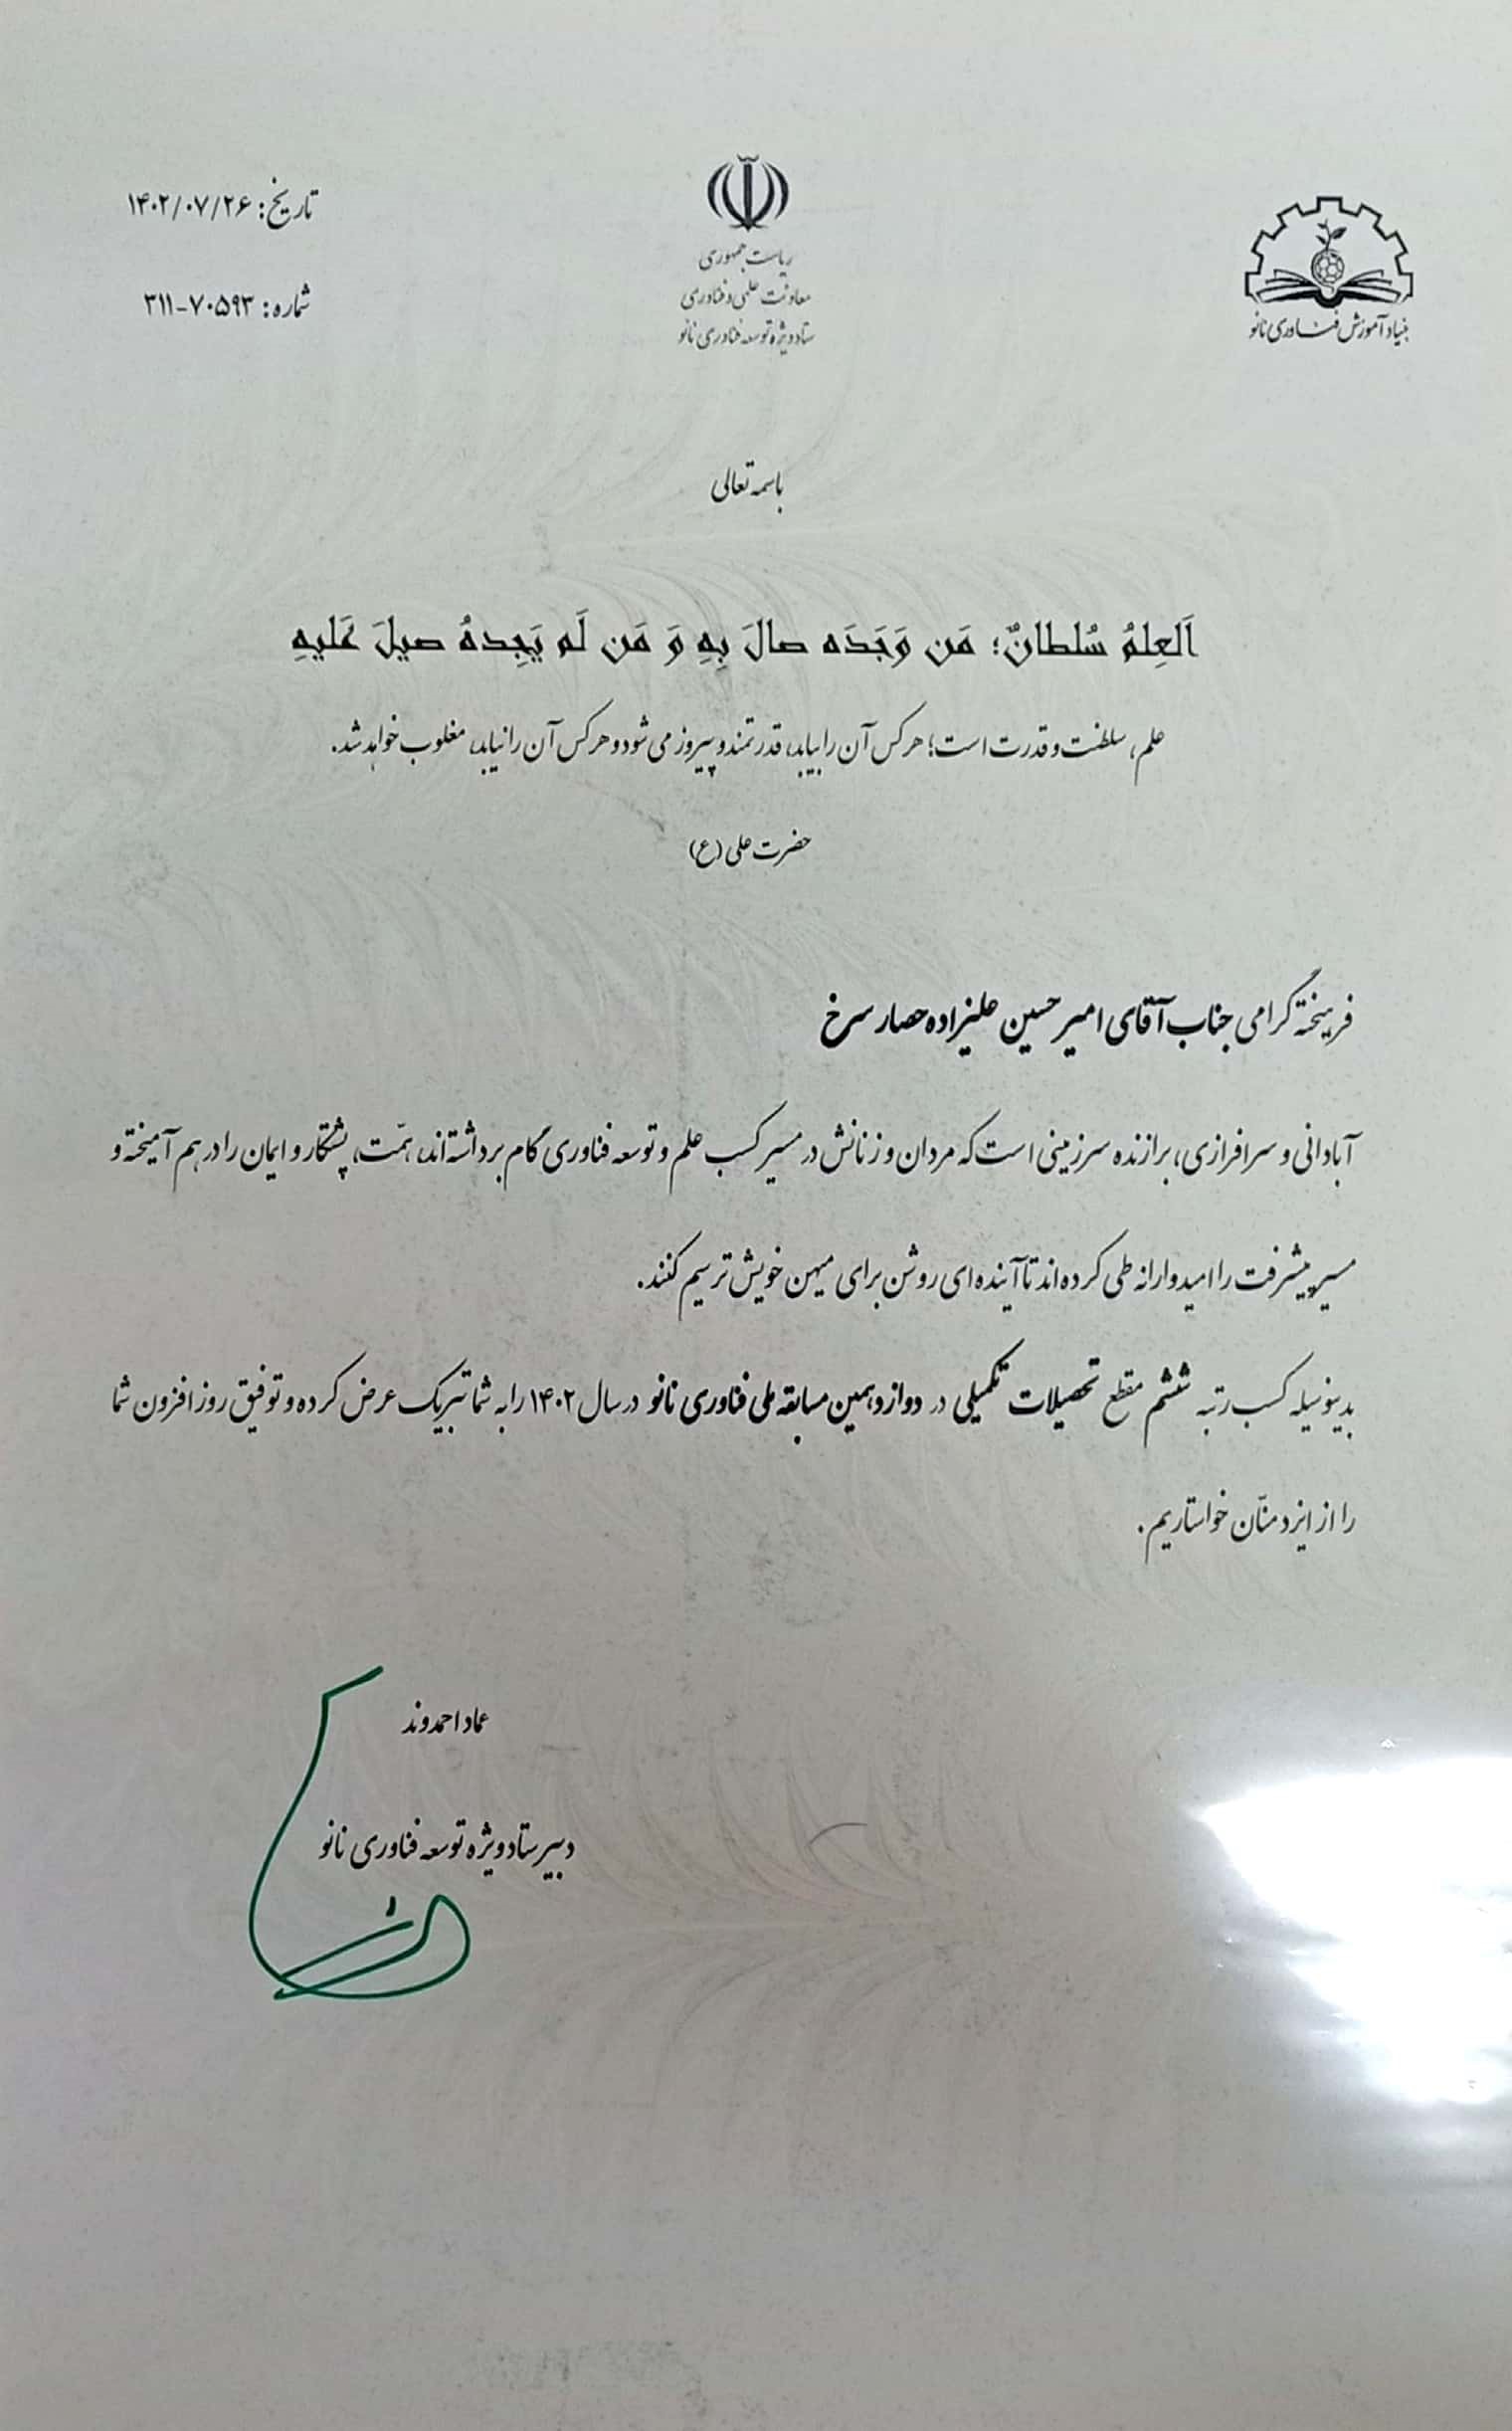 بنیاد آموزش فناوری نانو
ریاست جمهوری
معاونت علمی و فناوری
ستاد ویژه توسعه فناوری نانو
تاریخ: ۱۴۰۲/۰۷/۲۶
شماره: ۳۱۱-۷۰۵۹۳
باسمه تعالی
اَلعِلمُ سُلطانٌ؛ مَن وَجَدَه صالَ بِهِ وَ مَن لَم یَجِدهُ صیلَ عَلیهِ
علم، سلطنت و قدرت است؛ هر کس آن را بیابد، قدرتمند و پیروز می شود و هر کس آن را نیابد، مغلوب خواهد شد.
حضرت علی (ع)
فرهیخته گرامی جناب آقای امیرحسین علیزاده حصار سرخ
آبادانی و سرافرازی، برازنده سرزمینی است که مردان و زنانش در مسیر کسب علم و توسعه فناوری گام برداشته اند، همّت، پشتکار و ایمان را در هم آمیخته و
مسیر پیشرفت را امیدوارانه طی کرده اند تا آینده ای روشن برای میهن خویش ترسیم کنند.
بدینوسیله کسب رتبه ششم مقطع تحصیلات تکمیلی در دوازدهمین مسابقه ملی فناوری نانو در سال ۱۴۰۲ را به شما تبریک عرض کرده و توفیق روزافزون شما
را از ایزد منّان خواستاریم.
عماد احمدوند
دبیر ستاد ویژه توسعه فناوری نانو